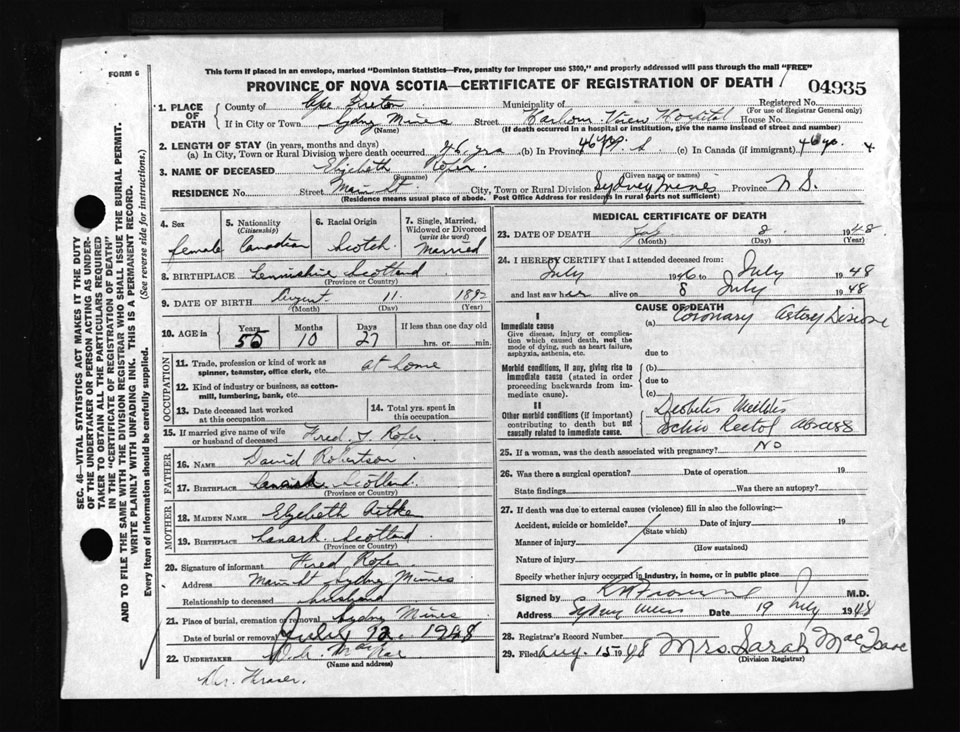 FORM 6
This form if placed in an envelope, marked "Dominion Statistics—Free, penalty for improper use $300," and properly addressed will pass through the mail "FREE"
PROVINCE OF NOVA SCOTIA—CERTIFICATE OF REGISTRATION OF DEATH
04935
1. PLACE OF DEATH
County of Cape Breton Municipality of Registered No.
(For use of Registrar General only)
If in City or Town Sydney Mines Street Harbour View Hospital House No.
(Name) (If death occurred in a hospital or institution, give the name instead of street and number)
2. LENGTH OF STAY (in years, months and days)
(a) In City, Town or Rural Division where death occurred 46 yrs (b) In Province 46 (c) In Canada (if immigrant) 46
3. NAME OF DECEASED Elizabeth Roper
(Surname) (Given name or names)
RESIDENCE No. Street Main St City, Town or Rural Division Sydney Mines Province N S.
(Residence means usual place of abode. Post Office Address for residents in rural parts not sufficient)
4. Sex
female
5. Nationality
(Citizenship)
Canadian
6. Racial Origin
Scotch
7. Single, Married, Widowed or Divorced
(write the word)
Married
8. BIRTHPLACE Scotland
(Province or Country)
9. DATE OF BIRTH August 11 1892
(Month) (Day) (Year)
10. AGE in
Years 55
Months 10
Days 27
If less than one day old
hrs. or min.
OCCUPATION
11. Trade, profession or kind of work as spinner, teamster, office clerk, etc. at home
12. Kind of industry or business, as cotton-mill, lumbering, bank, etc.
13. Date deceased last worked at this occupation
14. Total yrs. spent in this occupation
15. If married give name of wife or husband of deceased Fred. Roper
FATHER
16. NAME David Robertson
17. BIRTHPLACE Lanark Scotland
(Province or Country)
MOTHER
18. MAIDEN NAME Elizebeth
19. BIRTHPLACE Lanark. Scotland
(Province or Country)
20. Signature of informant Fred Roper
Address Main St Sydney Mines
Relationship to deceased husband
21. Place of burial, cremation or removal Sydney Mines
Date of burial or removal July 12 1948
22. UNDERTAKER
(Name and address)
Dr. Fraser.
MEDICAL CERTIFICATE OF DEATH
23. DATE OF DEATH July 8 1948
(Month) (Day) (Year)
24. I HEREBY CERTIFY that I attended deceased from:
July 1946 to July 1948
and last saw her alive on 8 July 1948
CAUSE OF DEATH
I
Immediate cause
Give disease, injury or complication which caused death, not the mode of dying, such as heart failure, asphyxia, asthenia, etc.
(a) Coronary artery Disease
due to
Morbid conditions, if any, giving rise to immediate cause (stated in order proceeding backwards from immediate cause)
(b)
due to
(c)
II
Other morbid conditions (if important) contributing to death but not causally related to immediate cause.
Diabetes Mellitus
Ischio Rectal Abscess
25. If a woman, was the death associated with pregnancy? NO
26. Was there a surgical operation? Date of operation 19
State findings Was there an autopsy?
27. If death was due to external causes (violence) fill in also the following:—
Accident, suicide or homicide? Date of injury 19
(State which)
Manner of injury
(How sustained)
Nature of injury
Specify whether injury occurred in industry, in home, or in public place
Signed by M.D.
Address Sydney Mines Date 19 July 1948
28. Registrar's Record Number
29. Filed Aug. 15 1948 Mrs. Sarah MacIsaac
(Division Registrar)
SEC. 46—VITAL STATISTICS ACT MAKES IT THE DUTY
OF THE UNDERTAKER OR PERSON ACTING AS UNDER-
TAKER TO OBTAIN ALL THE PARTICULARS REQUIRED
IN THE "CERTIFICATE OF REGISTRATION OF DEATH"
AND TO FILE THE SAME WITH THE DIVISION REGISTRAR WHO SHALL ISSUE THE BURIAL PERMIT.
WRITE PLAINLY WITH UNFADING INK. THIS IS A PERMANENT RECORD.
Every item of information should be carefully supplied. (See reverse side for instructions.)